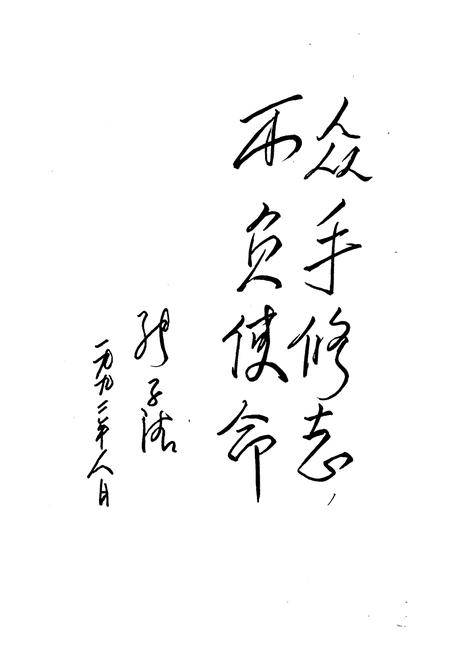 众手修志，
不负使命
一九九二年八月